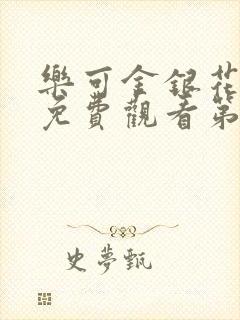 樂可金銀花
免費觀看第
史夢甄